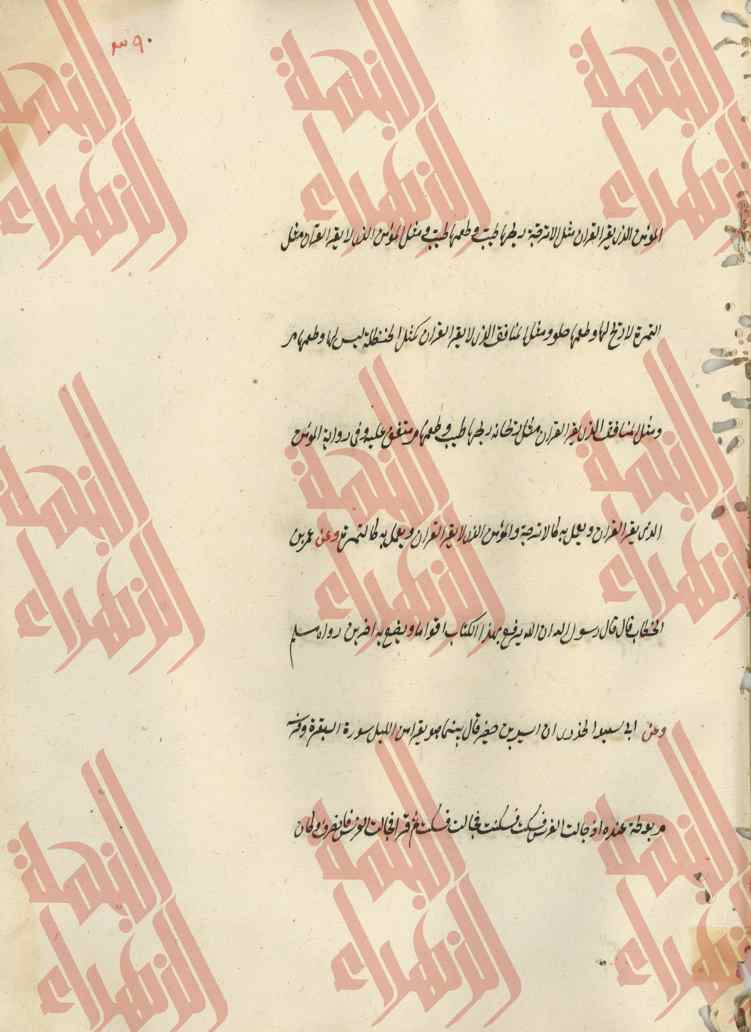 ٣٩٠
المؤمن الذى يقرا القران مثل الاترجة ريحها طيب وطعمها طيب ومثل المؤمن الذى لا يقرا القران مثل
التمرة لا ريح لها وطعمها حلو ومثل المنافق الذى لا يقرا القران كمثل الحنظلة ليس لها وطعمها مر
ومثل المنافق الذى يقرا القران مثل ريحانة ريحها طيب وطعمها مر متفق عليه وفى رواية المؤمن
الذى يقرا القران ويعمل به كالاترجة والمؤمن الذى لا يقرا القران ويعمل به كالتمرة وعن عمر بن
الخطاب قال قال رسول الله ان الله يرفع بهذا الكتاب اقواما ويضع به اخرين رواه مسلم
وعن ابى سعيد الخدرى ان اسيد بن حضير قال بينما هو يقرا من الليل سورة البقرة وفرسه
مربوطة عنده اذ جالت الفرس فسكت فسكنت فجالت فسكت ثم قرا فجالت الفرس فانصرف وكان